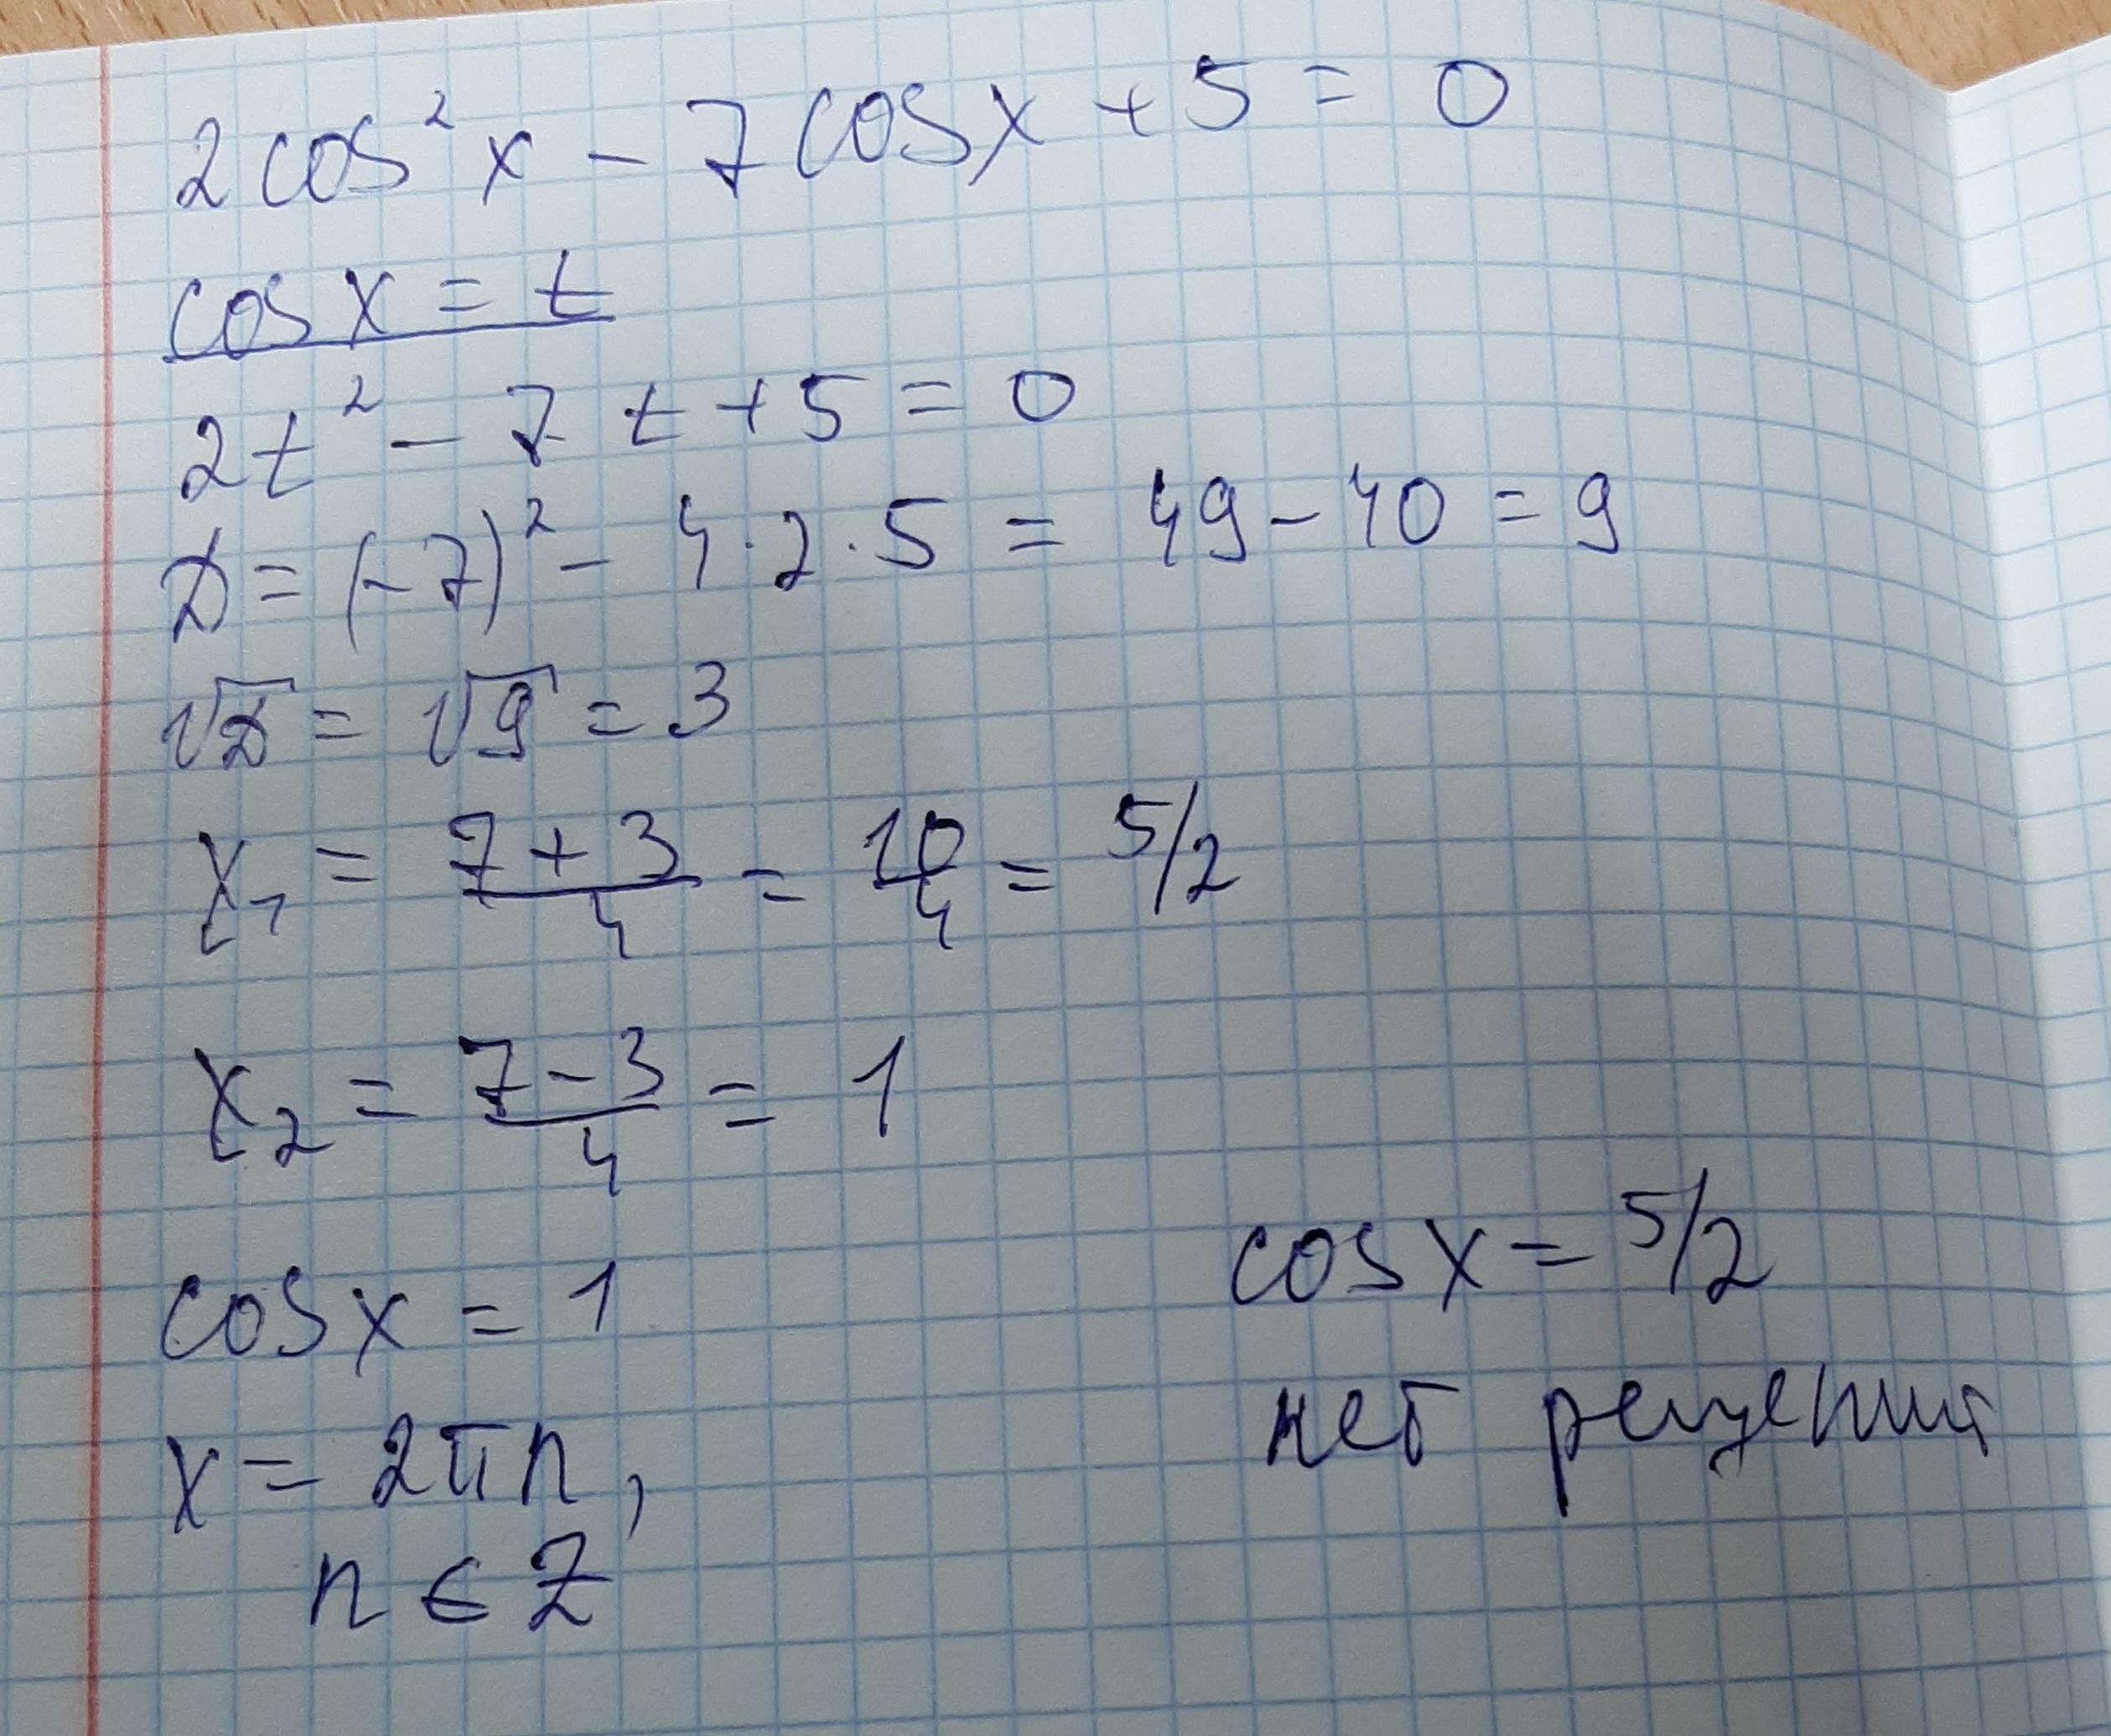 2cos²x - 7cosx + 5 = 0
cos x = t
2t² - 7t + 5 = 0
D = (-7)² - 4·2·5 = 49 - 40 = 9
√D = √9 = 3
x₁ = (7+3)/4 = 10/4 = 5/2
x₂ = (7-3)/4 = 1
cosx = 1
cosx = 5/2
x = 2πn,
нет решения
n ∈ Z